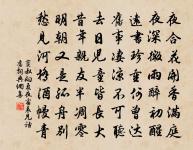 夜合花開香滿庭
夜深微雨醉初醒
遠書珍重何曾達
舊事淒涼不可聽
去日兒童皆長大
昔年親友半凋零
明朝又是孤舟別
愁見河橋酒幔青
竇叔向夏夜宿表兄話舊